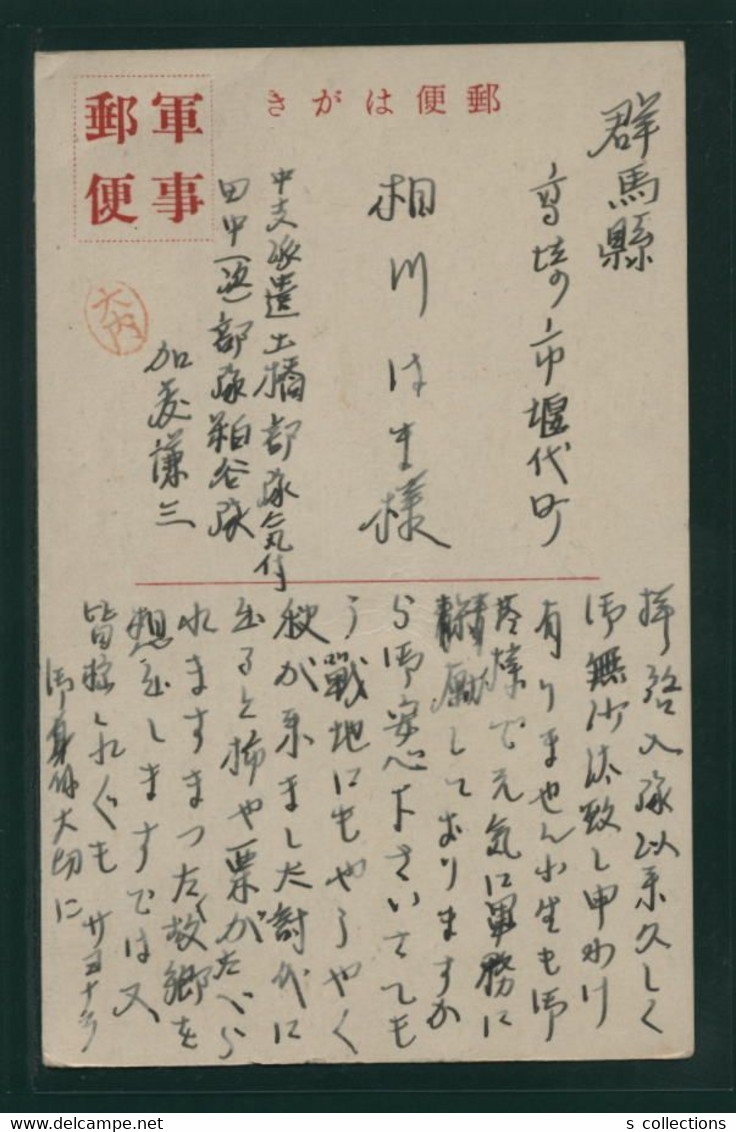 郵便はがき
軍事
郵便
群馬縣
高崎市堰代町
相川はま様
中支派遣土橋部隊気付
田中(逸)部隊粕谷隊
加藤謙三
大内
拝啓入隊以来久しく
御無沙汰致し申わけ
有りません小生も御
蔭様で元気に軍務に
精励しておりますか
ら御安心下さいさても
う戦地にもやうやく
秋が来ました討伐に
出ると柿や栗がたべら
れますまつたく故郷を
想出しますでは又
皆様くれぐも
御身体大切に
サヨナラ
s collections